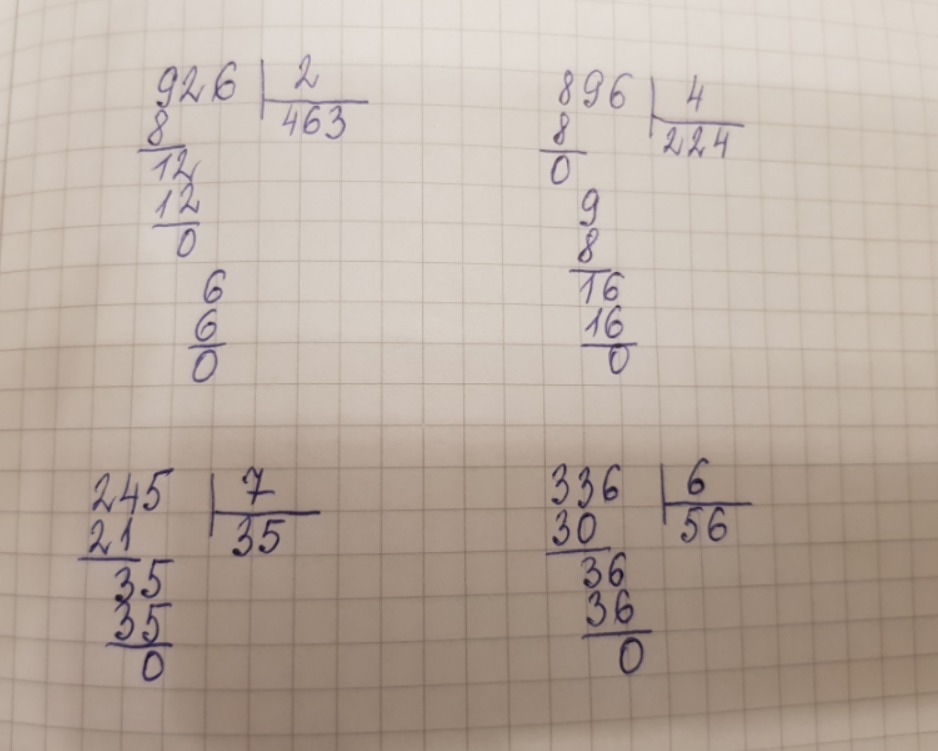 926 2
463
8
12
12
0
6
6
0
896 4
224
8
0
9
8
16
16
0
245 7
35
21
35
35
0
336 6
56
30
36
36
0